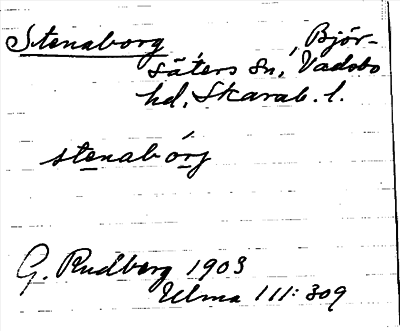 Stenaborg, Björ-
säters sn, Vadsbo
hd, Skarab. l.
stenabórg
G. Rudberg 1903
Ulma 111:309